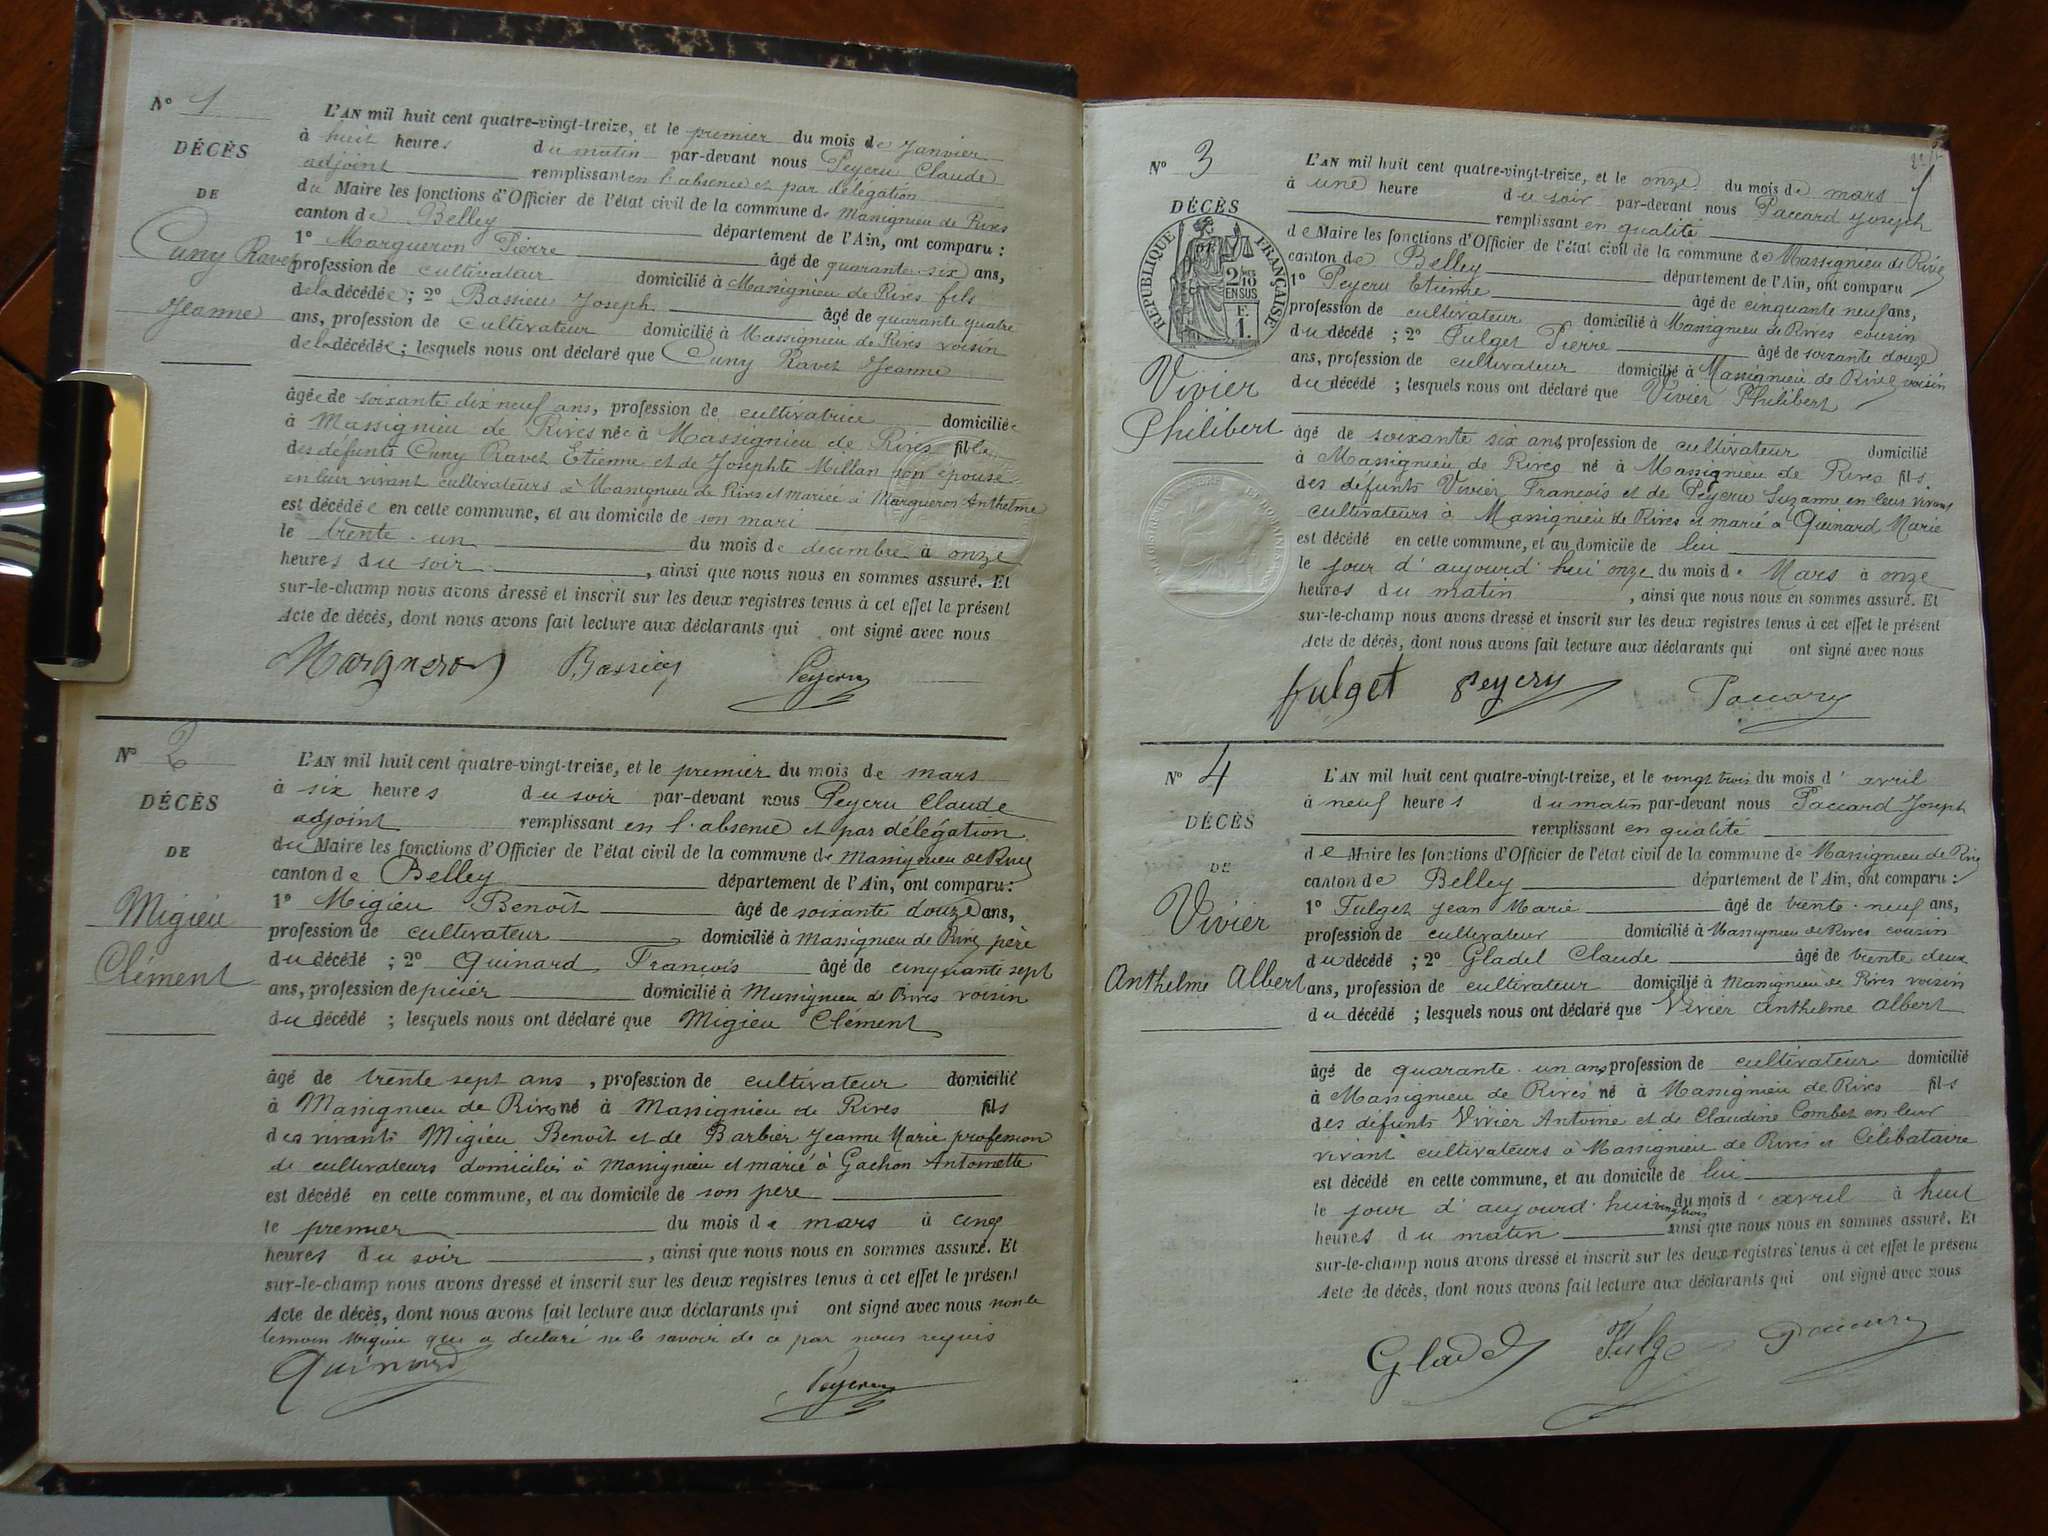 N° 1
DÉCÈS
DE
Cuny Ravet
Jeanne
L'AN mil huit cent quatre-vingt-treize, et le premier du mois de Janvier
à huit heures du matin par-devant nous Peycru Claude
adjoint remplissant en l'absence et par délégation
du Maire les fonctions d'Officier de l'état civil de la commune de Massignieu de Rives
canton de Belley département de l'Ain, ont comparu :
1° Margueron Pierre âgé de quarante-six ans,
profession de cultivateur domicilié à Massignieu de Rives fils
de la décédée ; 2° Bassieu Joseph âgé de quarante quatre
ans, profession de cultivateur domicilié à Massignieu de Rives voisin
de la décédée ; lesquels nous ont déclaré que Cuny Ravet Jeanne
âgée de soixante dix neuf ans, profession de cultivatrice domiciliée
à Massignieu de Rives née à Massignieu de Rives fille
des défunts Cuny Ravet Etienne et de Josephte Millan son épouse
en leur vivant cultivateurs à Massignieu de Rives et mariée à Margueron Anthelme
est décédée en cette commune, et au domicile de son mari
le trente-un du mois de décembre à onze
heures du soir, ainsi que nous nous en sommes assuré. Et
sur-le-champ nous avons dressé et inscrit sur les deux registres tenus à cet effet le présent
Acte de décès, dont nous avons fait lecture aux déclarants qui ont signé avec nous
Margueron Bassieu Peycru
N° 2
DÉCÈS
DE
Migieu
Clément
L'AN mil huit cent quatre-vingt-treize, et le premier du mois de mars
à six heures du soir par-devant nous Peycru Claude
adjoint remplissant en l'absence et par délégation
du Maire les fonctions d'Officier de l'état civil de la commune de Massignieu de Rives
canton de Belley département de l'Ain, ont comparu :
1° Migieu Benoît âgé de soixante douze ans,
profession de cultivateur domicilié à Massignieu de Rives père
du décédé ; 2° Guinard François âgé de cinquante sept
ans, profession de domicilié à Massignieu de Rives voisin
du décédé ; lesquels nous ont déclaré que Migieu Clément
âgé de trente sept ans, profession de cultivateur domicilié
à Massignieu de Rives né à Massignieu de Rives fils
des vivants Migieu Benoît et de Barbier Jeanne Marie profession
de cultivateurs domiciliés à Massignieu et marié à Gachon Antoinette
est décédé en cette commune, et au domicile de son père
le premier du mois de mars à cinq
heures du soir, ainsi que nous nous en sommes assuré. Et
sur-le-champ nous avons dressé et inscrit sur les deux registres tenus à cet effet le présent
Acte de décès, dont nous avons fait lecture aux déclarants qui ont signé avec nous non le
témoin Migieu qui a déclaré ne le savoir de ce par nous requis
Guinard Peycru
N° 3
DÉCÈS
RÉPUBLIQUE FRANÇAISE
2/10
EN SUS
E.
1.
Vivier
Philibert
L'AN mil huit cent quatre-vingt-treize, et le onze du mois de mars
à une heure du soir par-devant nous Paccard Joseph
remplissant en qualité
de Maire les fonctions d'Officier de l'état civil de la commune de Massignieu de Rives
canton de Belley département de l'Ain, ont comparu
1° Peycru Etienne âgé de cinquante neuf ans,
profession de cultivateur domicilié à Massignieu de Rives cousin
du décédé ; 2° Fulget Pierre âgé de soixante douze
ans, profession de cultivateur domicilié à Massignieu de Rives voisin
du décédé ; lesquels nous ont déclaré que Vivier Philibert
âgé de soixante six ans, profession de cultivateur domicilié
à Massignieu de Rives né à Massignieu de Rives fils
des défunts Vivier François et de Peycru Suzanne en leur vivant
cultivateurs à Massignieu de Rives et marié à Guinard Marie
est décédé en cette commune, et au domicile de lui
le jour d'aujourd'hui onze du mois de Mars à onze
heures du matin, ainsi que nous nous en sommes assuré. Et
sur-le-champ nous avons dressé et inscrit sur les deux registres tenus à cet effet le présent
Acte de décès, dont nous avons fait lecture aux déclarants qui ont signé avec nous
fulget Peycru Paccard
N° 4
DÉCÈS
DE
Vivier
Anthelme Albert
L'AN mil huit cent quatre-vingt-treize, et le vingt trois du mois d'avril
à neuf heures du matin par-devant nous Paccard Joseph
remplissant en qualité
de Maire les fonctions d'Officier de l'état civil de la commune de Massignieu de Rives
canton de Belley département de l'Ain, ont comparu :
1° Fulget Jean Marie âgé de trente-neuf ans,
profession de cultivateur domicilié à Massignieu de Rives cousin
du décédé ; 2° Gladel Claude âgé de trente deux
ans, profession de cultivateur domicilié à Massignieu de Rives voisin
du décédé ; lesquels nous ont déclaré que Vivier Anthelme Albert
âgé de quarante-un ans, profession de cultivateur domicilié
à Massignieu de Rives né à Massignieu de Rives fils
des défunts Vivier Antoine et de Claudine Combet en leur
vivant cultivateurs à Massignieu de Rives et Célibataire
est décédé en cette commune, et au domicile de lui
le jour d'aujourd'hui vingt trois du mois d'avril à huit
heures du matin ainsi que nous nous en sommes assuré. Et
sur-le-champ nous avons dressé et inscrit sur les deux registres tenus à cet effet le présent
Acte de décès, dont nous avons fait lecture aux déclarants qui ont signé avec nous
Gladel Fulge Paccard